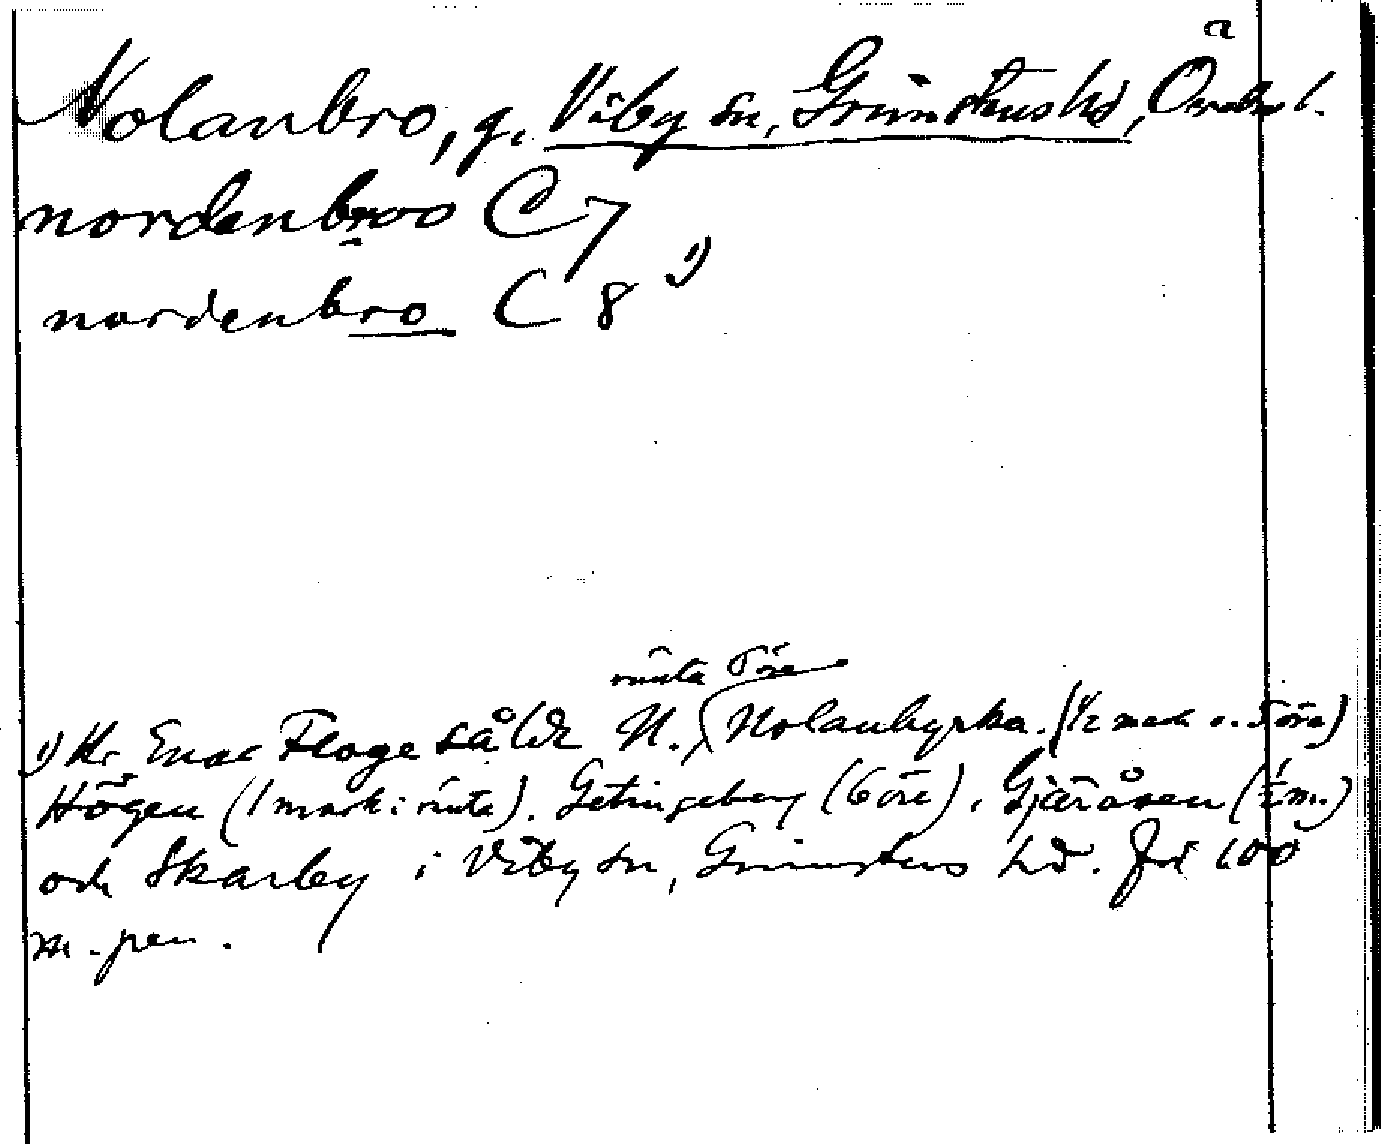 a
Nolanbro, g. Viby sn, Grimstens hd, Örebro l.
nordenbroo C 7
nordenbro C 8 1)
ränta öre
1) Hr Enar Flage sålde N. Nolankyrka (1/2 mark o. 5 öre)
Högen (1 mark i ränta). Getingeberg (6 öre), Gjäråsen (1/2 m.)
och Skarby i Viby sn, Grimstens hd. för 100
m. pen.